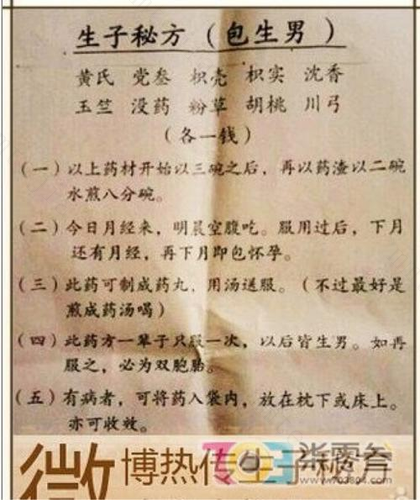 生子秘方（包生男）
黄氏 党叁 枳壳 枳实 沈香
玉竺 没药 粉草 胡桃 川弓
（各一钱）
（一）以上药材开始以三碗之后，再以药渣以二碗
水煎八分碗。
（二）今日月经来，明晨空腹吃。服用过后，下月
还有月经，再下月即包怀孕。
（三）此药可制成药丸，用汤送服。（不过最好是
煎成药汤喝）
（四）此药方一辈子只服一次，以后皆生男。如再
服之，必为双胞胎。
（五）有病者，可将药入袋内，放在枕下或床上。
亦可收效。
微博热传生子秘方